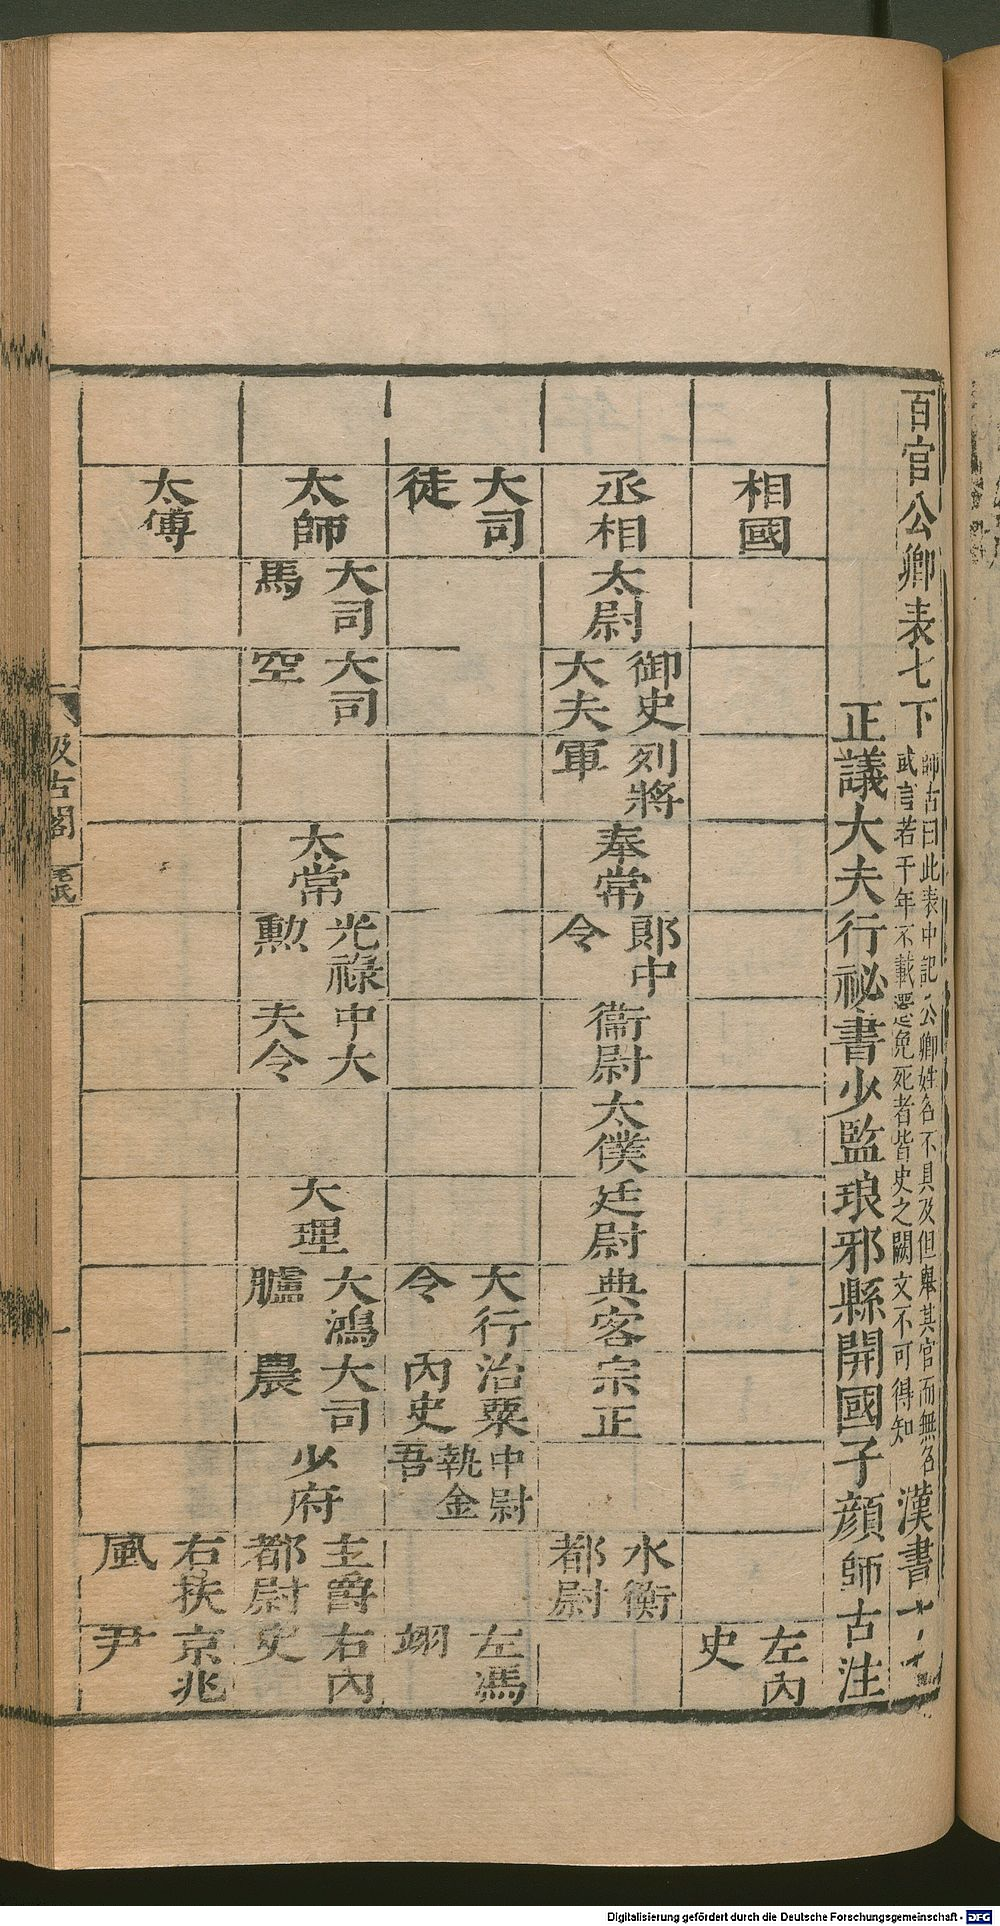 百官公卿表七下
師古曰此表中記公卿姓名不具及但舉其官而無名
或言若干年不載遷免死者皆史之闕文不可得知
漢書十九
正議大夫行祕書少監琅邪縣開國子顏師古注
相國
左內
史
丞相
太尉
御史
大夫
列將
軍
奉常
郞中
令
衞尉
太僕
廷尉
典客
宗正
水衡
都尉
大司
徒
大行
令
治粟
內史
中尉
執金
吾
左馮
翊
太師
大司
馬
大司
空
太常
光祿
勲
中大
夫令
大理
大鴻
臚
大司
農
少府
主爵
都尉
右內
史
太傅
右扶
風
京兆
尹
汲古閣
毛氏
一
Digitalisierung gefördert durch die Deutsche Forschungsgemeinschaft - DFG